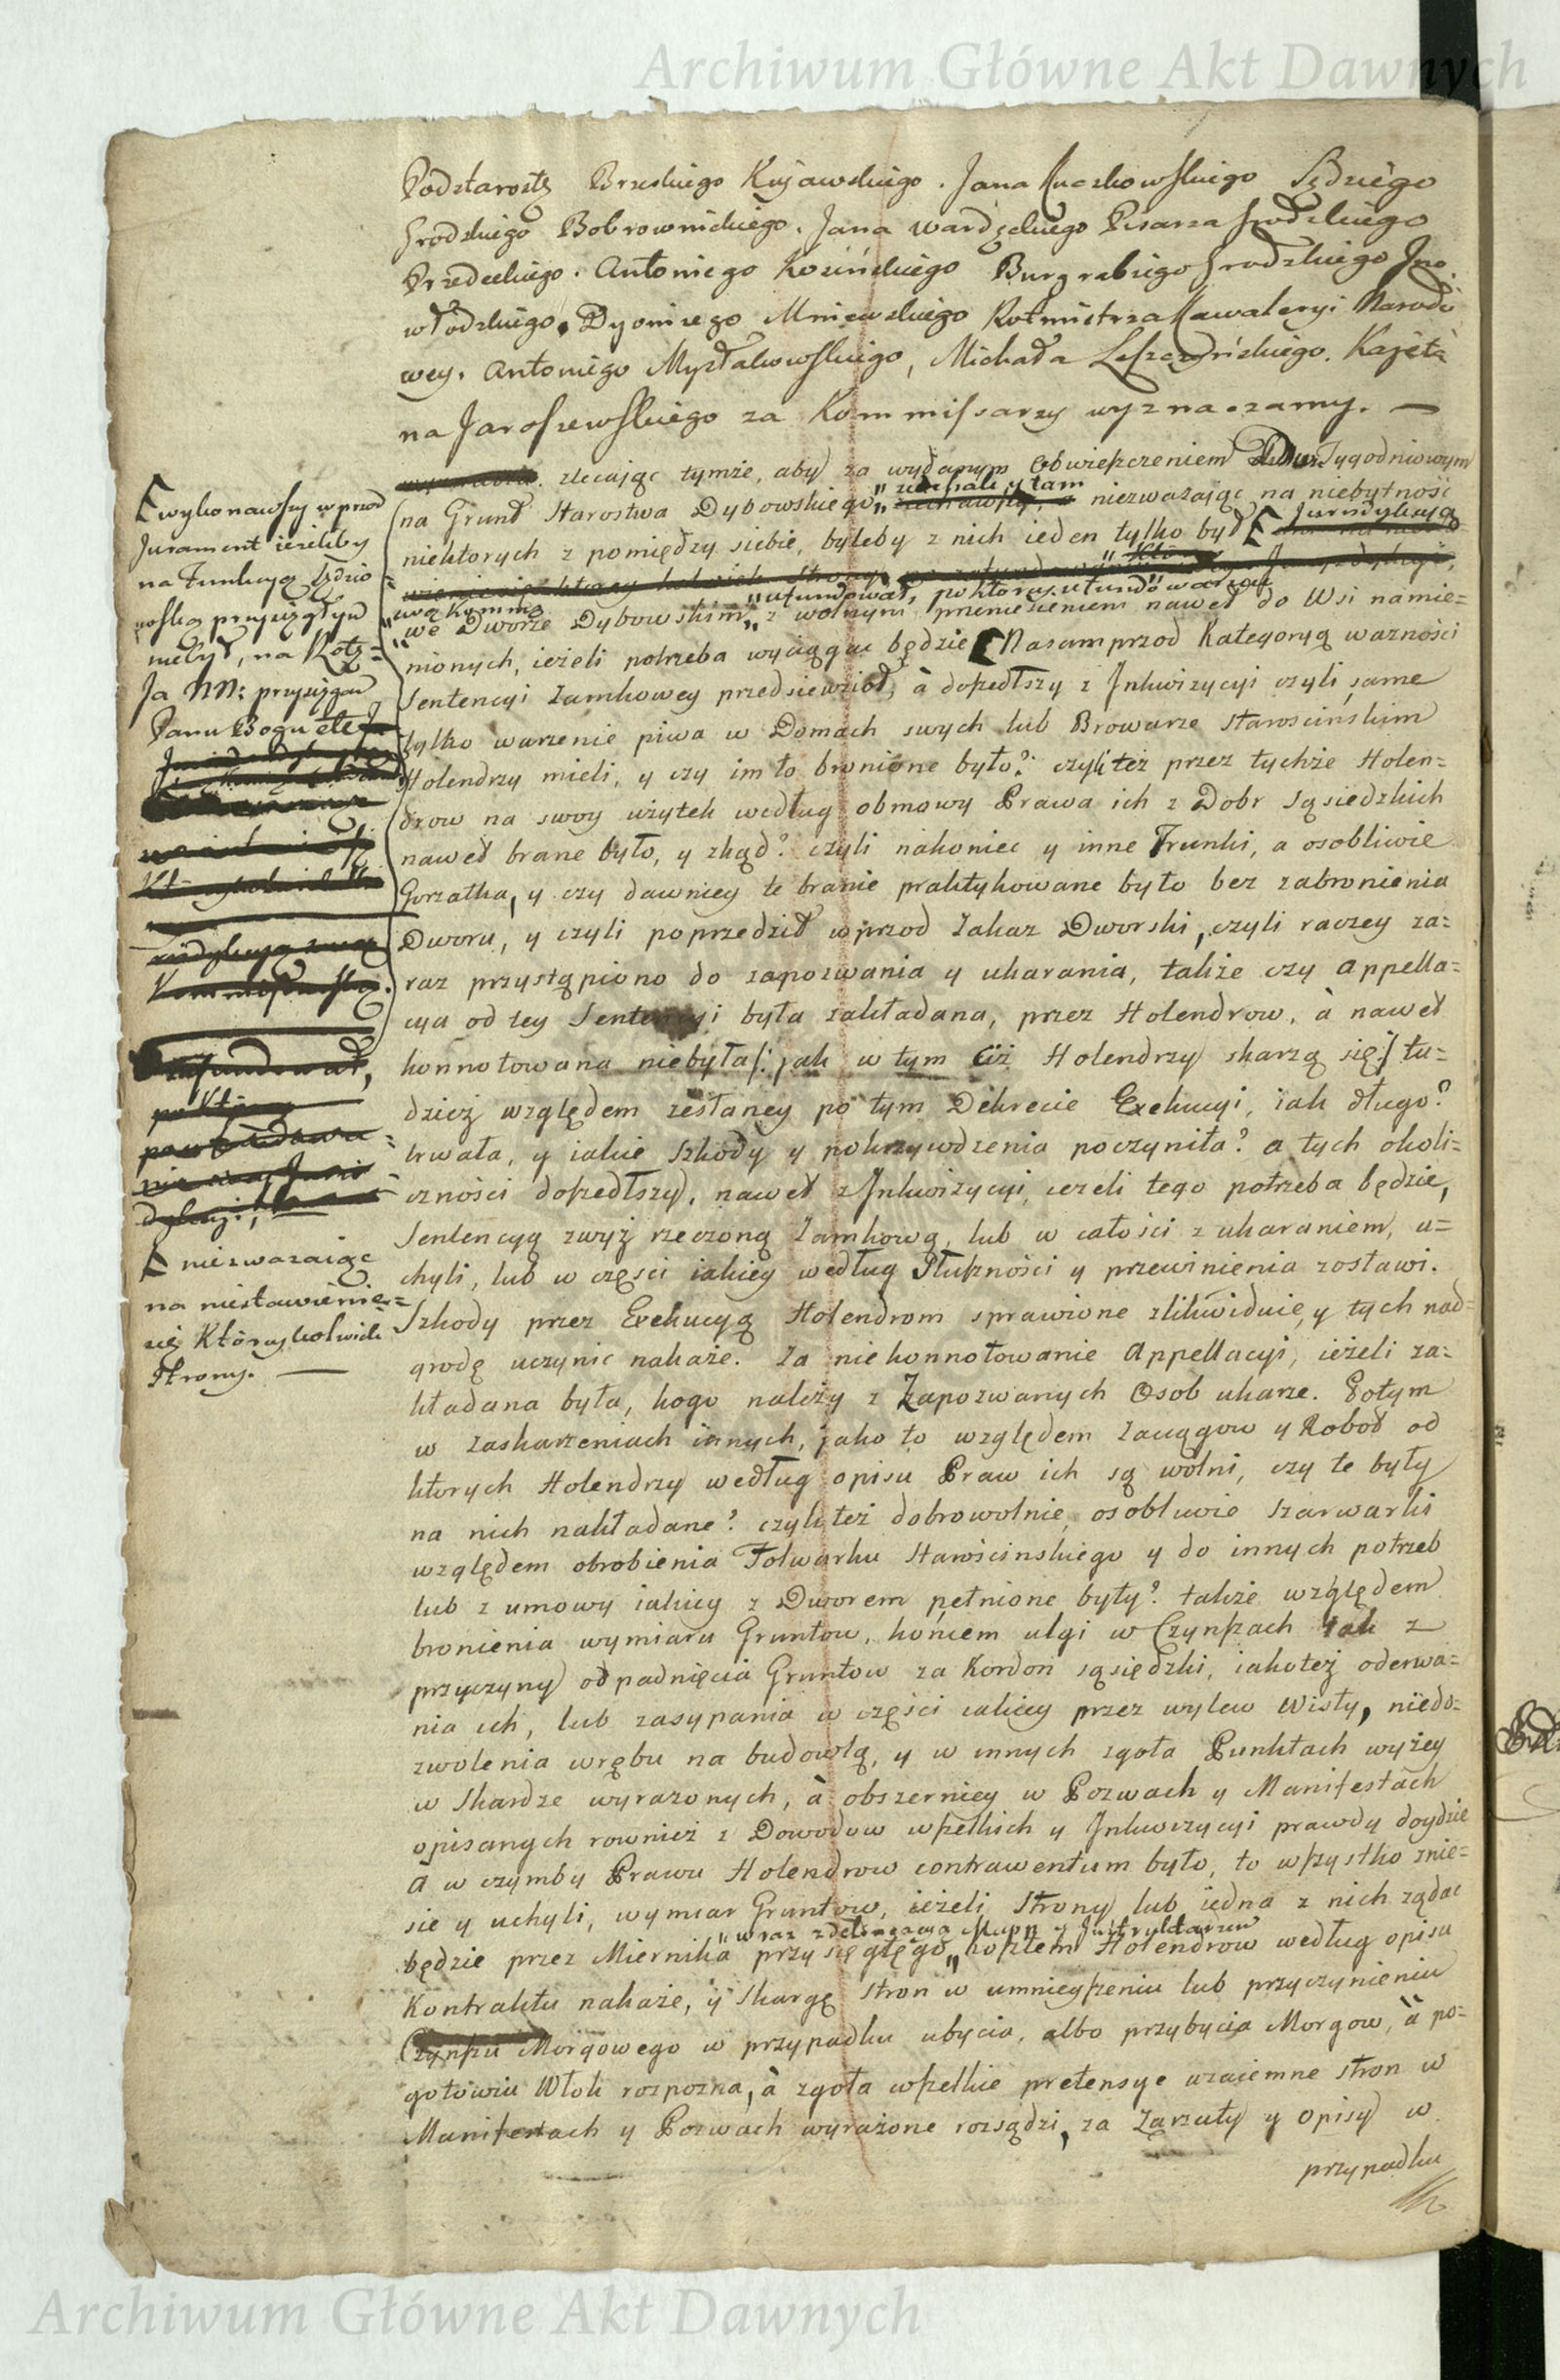 Archiwum Główne Akt Dawnych
Podstarostę Brzeskiego Kujawskiego. Jana Kuczkowskiego Sędziego
Grodzkiego Bobrownickiego. Jana Wardęskiego Pisarza Grodzkiego
Przedeckiego. Antoniego Kosińskiego Burgrabiego Grodzkiego Ino.
włodzkiego. Dyonizego Mniewskiego Rotmistrza Kawaleryi Narodo
wey. Antoniego Mysłakowskiego, Michała Leszczyńskiego. Kajeta
na Jaroszewskiego za Kommissarzy wyznaczamy. —
zlecając tymże, aby za wydanym Obwieszczeniem Dwu Tygodniowym
na Grunt Starostwa Dybowskiego „ziechali y tam niezważając na niebytność
niektorych z pomiędzy siebie, byleby z nich ieden tylko był [ Jurysdykcyą
swą Kommis. „ufundował, po ktorey ufundowaniu
we Dworze Dybowskim „z wolnym przeniesieniem nawet do Wsi namie=
nionych, ieżeli potrzeba wyciągac będzie [ Nasamprzod Kategoryą ważności
Sentencyi Zamkowey przedsiewziął, à doszedłszy z Inkwizycyi czyli same
tylko warzenie piwa w Domach swych lub Browarze Starościńskim
Holendrzy mieli, y czy im to bronione było? czyli też przez tychże Holen=
drow na swoy użytek według obmowy Prawa ich z Dobr Sąsiedzkich
nawet brane było, y zkąd? czyli nakoniec y inne Trunki, a osobliwie
Gorzałka, y czy dawniey te branie praktykowane było bez zabronienia
Dworu, y czyli poprzedził wprzod Zakaz Dworski, czyli raczey za=
raz przystąpiono do zapozwania y ukarania, także czy Appella=
cya od tey Sentencyi była zakładana, przez Holendrow, à nawet
konnotowana niebyła /: jak w tym ciż Holendrzy skarzą się :/ tu=
dzież względem zesłaney po tym Dekrecie Exekucyi, iak długo?
trwała, y iakie Szkody y pokrzywdzenia poczyniła? a tych okoli=
czności doszedłszy, nawet z Inkwizycyi, ieżeli tego potrzeba będzie,
Sentencyą zwyż rzeczoną Zamkową, lub w całości z ukaraniem, u=
chyli, lub w części iakiey według Słuszności y przewinienia zostawi.
Szkody przez Exekucyą Holendrom sprawione zlikwiduie, y tych nad=
grodę uczynić nakaże. Za niekonnotowanie Appellacyi, ieżeli za=
kładana była, kogo należy z Zapozwanych Osob ukarze. Potym
w zaskarżeniach innych, jako to względem Zaciągow y Robot od
ktorych Holendrzy według opisu Praw ich są wolni, czy te były
na nich nakładane? czyli też dobrowolnie, osobliwie Szarwarki
względem obrobienia Folwarku Starościnskiego y do innych potrzeb
lub z umowy iakiey z Dworem pełnione były? także względem
bronienia wymiaru Gruntow, końcem ulgi w Czynszach iak z
przyczyny odpadnięcia Gruntow za Kordon sąsiedzki, iakoteż oderwa=
nia ich, lub zasypania w części iakiey przez wylew Wisły, niedo=
zwolenia wrębu na budowlą, y w innych zgoła Punktach wyżey
w Skardze wyrażonych, à obszerniey w Pozwach y Manifestach
opisanych rownież z Dowodow wszelkich y Inkwizycyi prawdy doydzie
à w czymby Prawu Holendrow contrawentum było, to wszystko znie=
sie y uchyli, wymiar Gruntow, ieżeli Strony lub iedna z nich żądac
„wraz z delineacyą Mapp y Instruktarzem
będzie przez Miernika przysięgłego „kosztem Holendrow według opisu
Kontraktu nakaże, y Skargę Stron w umnieyszeniu lub przyczynieniu
Czynszu Morgowego w przypadku ubycia, albo przybycia Morgow, à po=
gotowiu Włok rozpozna, à zgoła wszelkie pretensye wzaiemne Stron w
Manifestach y Pozwach wyrażone rozsądzi, za Zarzuty y Opisy w
przypadku
[ wykonawszy wprzod
Jurament ieżeliby
na Funkcyą Sędzio=
wską przysięgłym
niebył, na Rotę=
Ja NN: przysięgam
Panu Bogu etc
[ niezważaiąc
na niestawienie=
się ktoreykolwiek
Strony. —
Archiwum Główne Akt Dawnych